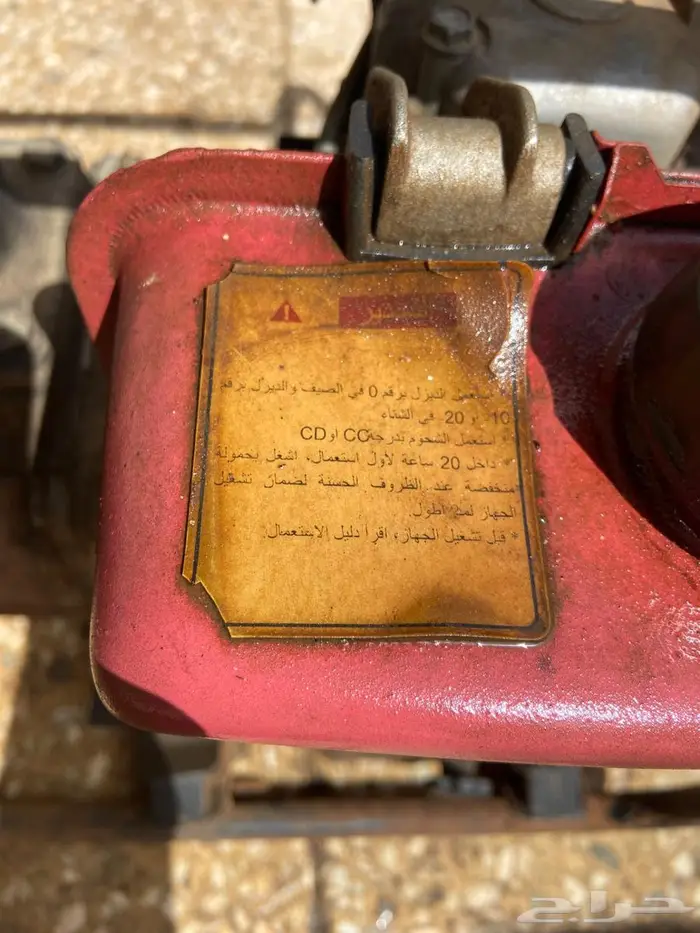 تحذير
* استعمل الديزل برقم 0 في الصيف والديزل برقم
10 او 20 في الشتاء
* استعمل الشحوم بدرجة CC او CD
* داخل 20 ساعة لاول استعمال، اشغل بحمولة
منخفضة عند الظروف الحسنة لضمان تشغيل
الجهاز لمدة اطول.
* قبل تشغيل الجهاز، اقرأ دليل الاستعمال.
حراج